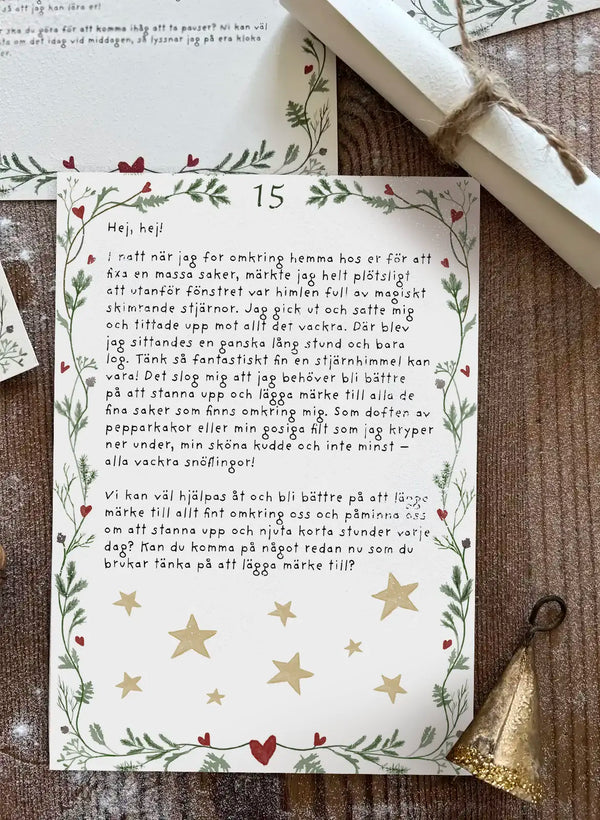 att jag kan lära er!
ska du göra för att komma ihåg att ta pauser? Ni kan väl
om det idag vid middagen, så lyssnar jag på era kloka
15
Hej, hej!
I natt när jag for omkring hemma hos er för att
fixa en massa saker, märkte jag helt plötsligt
att utanför fönstret var himlen full av magiskt
skimrande stjärnor. Jag gick ut och satte mig
och tittade upp mot allt det vackra. Där blev
jag sittandes en ganska lång stund och bara
log. Tänk så fantastiskt fin en stjärnhimmel kan
vara! Det slog mig att jag behöver bli bättre
på att stanna upp och lägga märke till alla de
fina saker som finns omkring mig. Som doften av
pepparkakor eller min gosiga filt som jag kryper
ner under, min sköna kudde och inte minst –
alla vackra snöflingor!
Vi kan väl hjälpas åt och bli bättre på att lägga
märke till allt fint omkring oss och påminna oss
om att stanna upp och njuta korta stunder varje
dag? Kan du komma på något redan nu som du
brukar tänka på att lägga märke till?